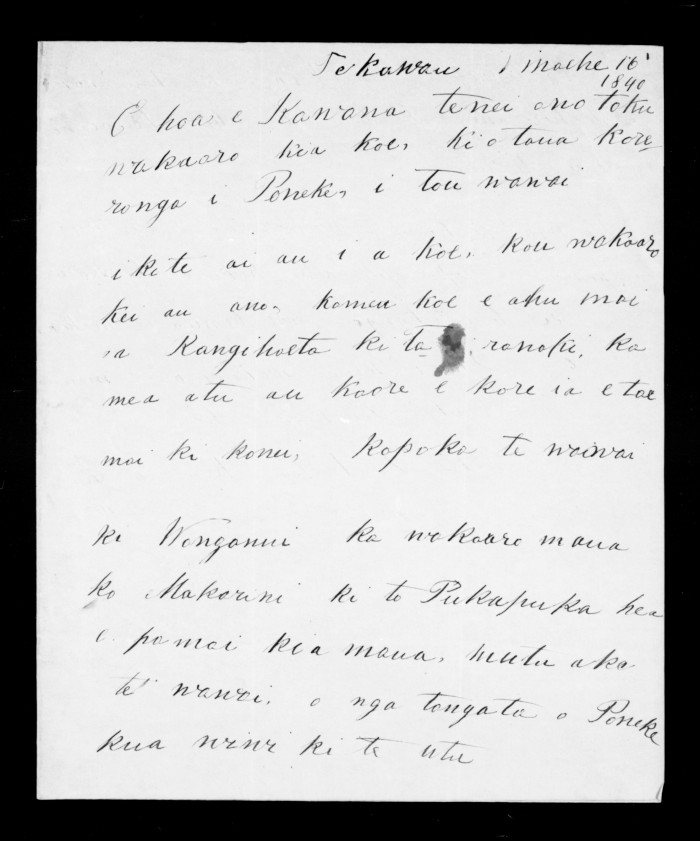 Te kawau 1 maehe 16
1840
E hoa e Kawana tenei ano toku
wakaaro kia koe, ki o taua kore-
ronga i Poneke, i tou wawai
i kite ai au i a koe, kou wakaaro
kei au ano, komeu koe e ahu mai
ia Rangihaeta ki ta ranapi, ka
mea atu au kaore e kore ia e tae
mai ki konei, kapoka te waiwai
ki Wonganui ka wakaaro maua
ko Makarini ki to Pukapuka hea
e pa mai kia maua, mutu aka
te wawai, o nga tangata o Poneke
kua wiwi ki te utu